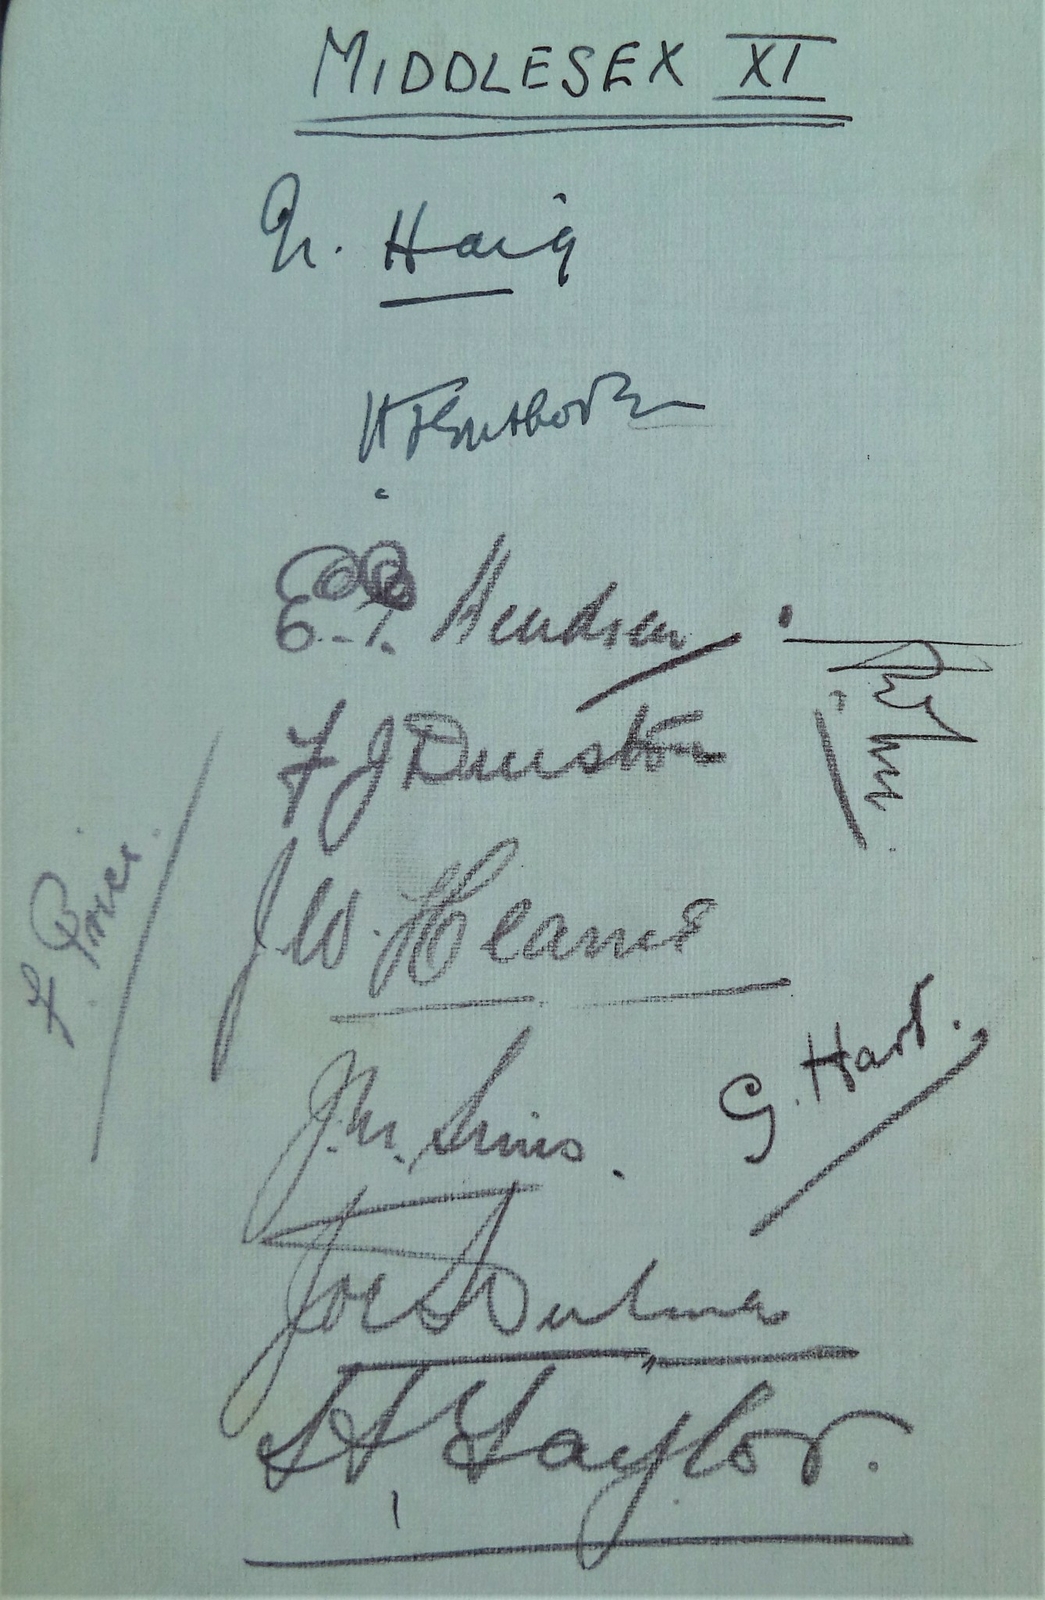 MIDDLESEX XI
N. Haig
E. Hendren
F J Durston
J. W. Hearne
F. Price.
G. Hart.
J. M. Sims.
Joe Hulme
Taylor.